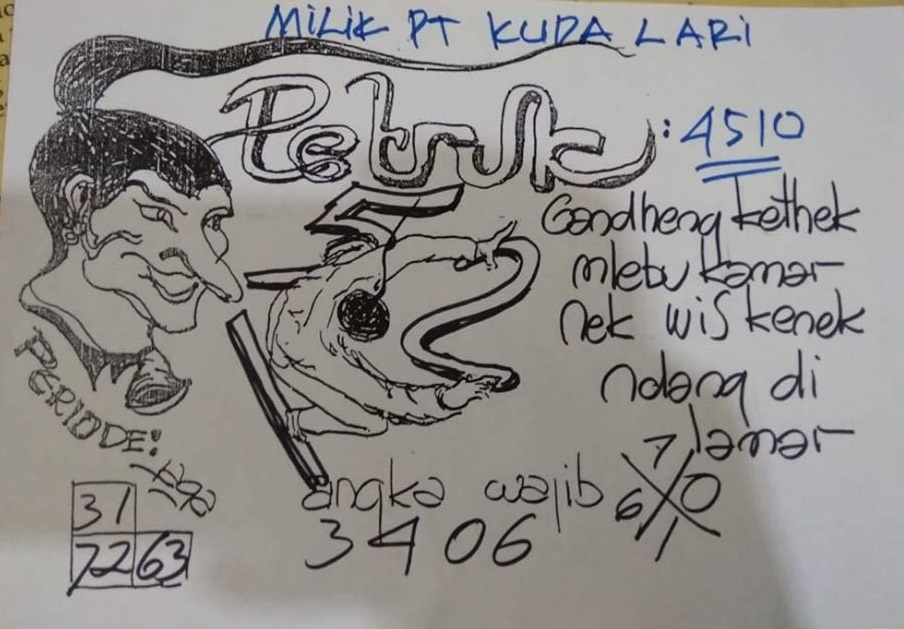 MILIK PT KUDA LARI
Petruk : 4510
5
2
Gandheng kethek
mlebu kamar
Nek wis kenek
ndang di
lamar
PERIODE:
31
72 63
angka wajib
3406
7
6 0
1